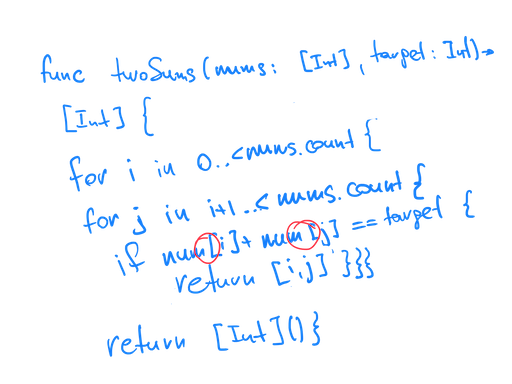 func twoSums(nums: [Int], target: Int)->
[Int] {
for i in 0..<nums.count {
for j in i+1..< nums.count {
if num[i]+ num[j] == target {
return [i,j] }}}
return [Int]()}